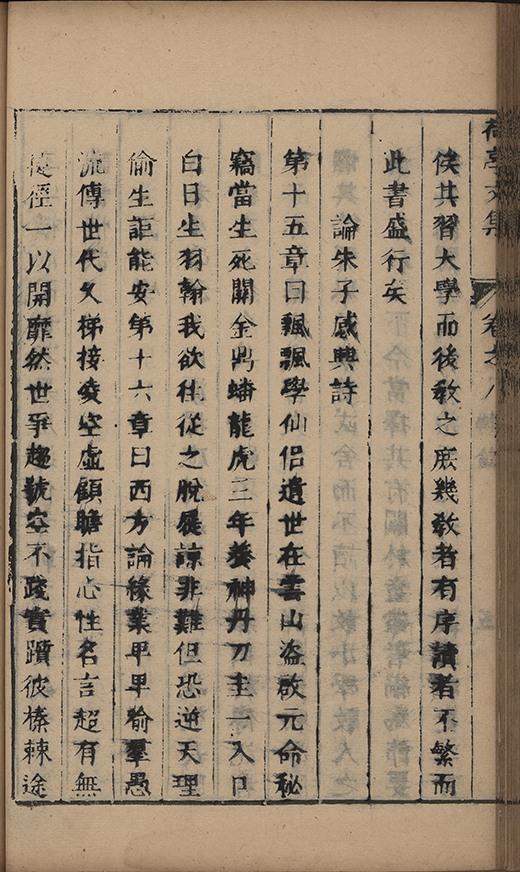 亭文集 卷之八
俟其習大學而後敎之庶幾敎者有序讀者不繁而
此書盛行矣
論朱子感興詩
第十五章曰飄飄學仙侶遺世在雲山盗啟元命秘
竊當生死關金鼎蟠龍虎三年養神丹刀圭一入口
白日生羽翰我欲往從之脫屣諒非難但恐逆天理
偷生詎能安第十六章曰西方論緣業卑卑喻羣愚
流傳世代久梯接凌空虛顧瞻指心性名言超有無
捷徑一以開靡然世爭趨號空不踐實躓彼榛棘途